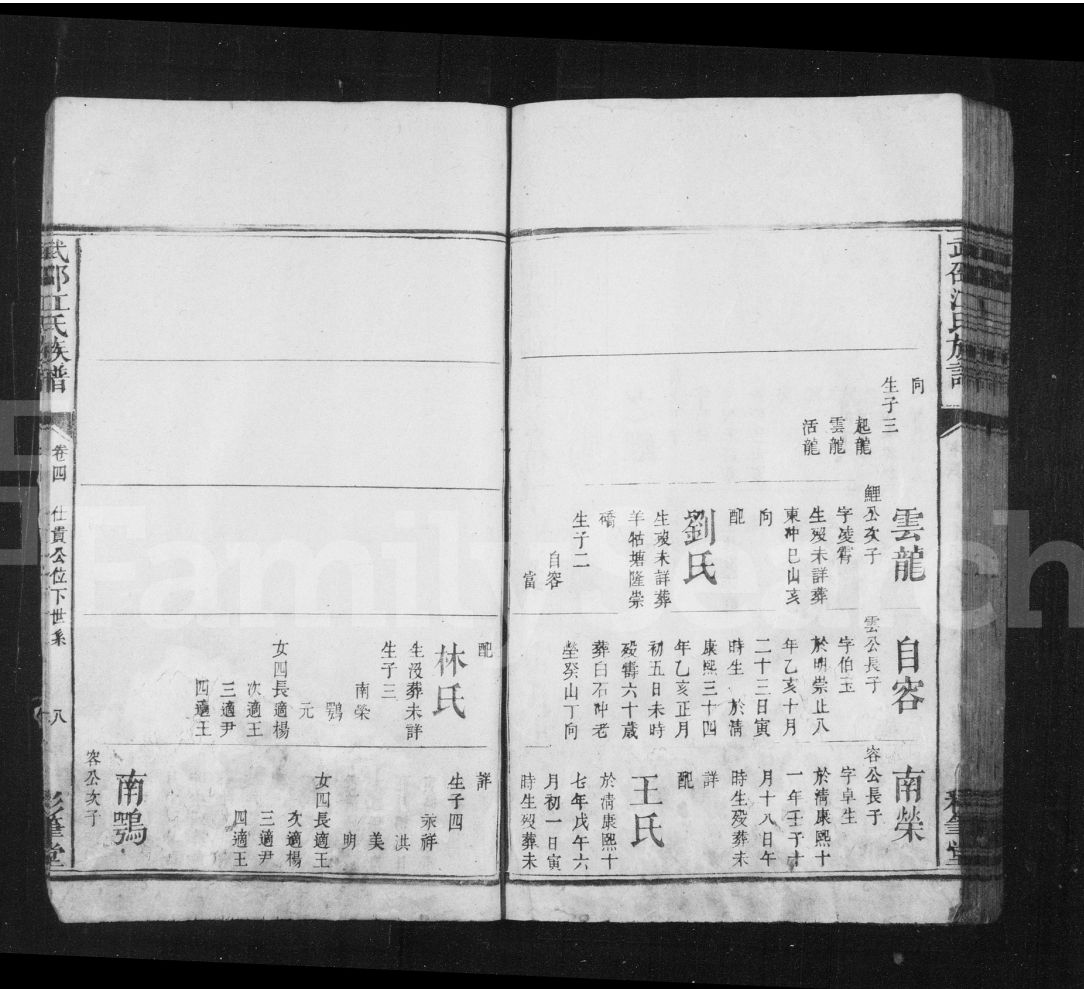 武邵江氏族譜
向
生子三
起龍
雲龍
活龍
雲龍
鯉公次子
字凌霄
生歿未詳葬
東冲巳山亥
向
配
劉氏
生歿未詳葬
羊牯塘隆崇
礄
生子二
自容
當
自容
雲公長子
字伯玉
於明崇止八
年乙亥十月
二十三日寅
時生 於清
康熙三十四
年乙亥正月
初五日未時
歿壽六十歲
葬臼石冲老
塋癸山丁向
南榮
容公長子
字卓生
於清康熙十
一年壬子十
月十八日午
時生歿葬未
詳
配
王氏
於清康熙十
七年戊午六
月初一日寅
時生歿葬未
配
林氏
生沒葬未詳
生子三
南榮
鶚
元
女四長適楊
次適王
三適尹
四適王
詳
生子四
永祥
洪
美
明
女四長適王
次適楊
三適尹
四適王
南鶚
容公次子
武邵江氏族譜
卷四
仕貴公位下世系
八
彩筆堂
FamilySearch